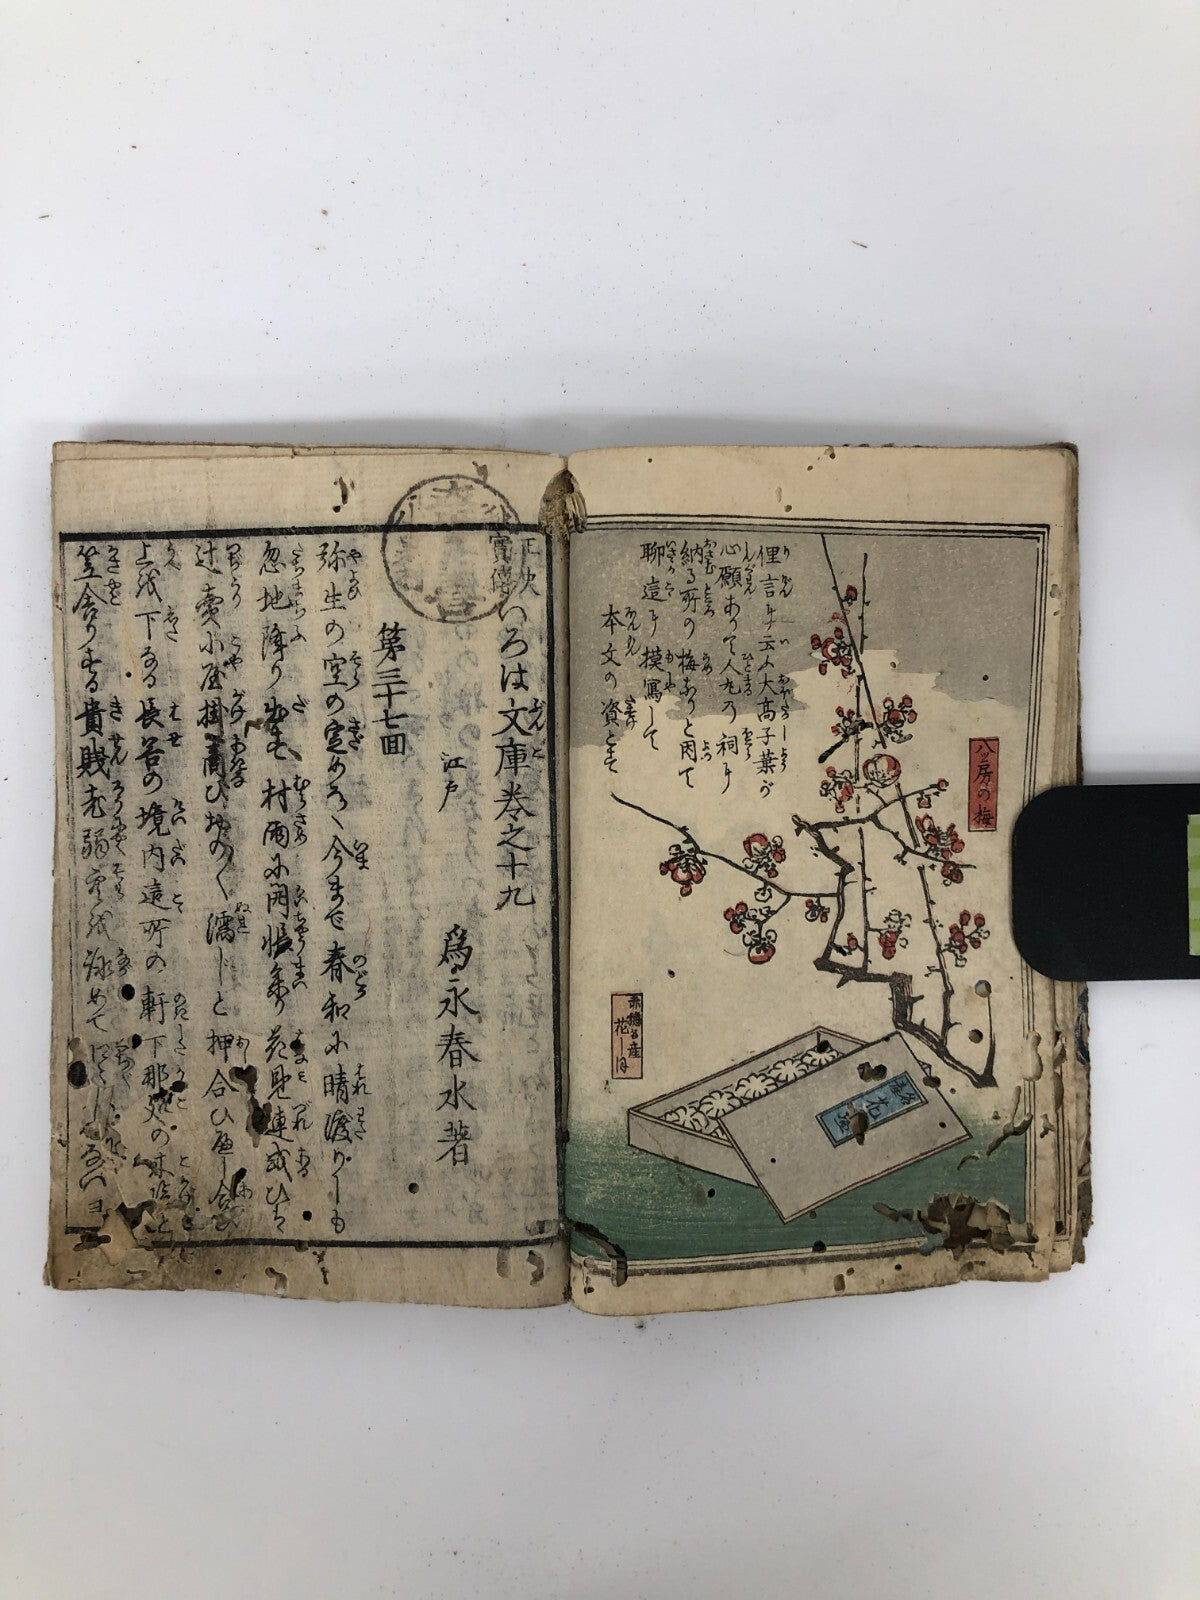 八ッ房の梅
俚言に云ふ大高子葉が
心願ありて人丸の祠に
納る所の梅なりと因て
聊這に摸写して
本文の資とす
赤穂名産
花しほ
正史
實傳
いろは文庫巻之十九
江戸
為永春水著
第三十七回
弥生の空の定めなく今まで春和に晴渡りしも
忽地降り出す村雨に開帳参り花見連或ひは
辻賣小屋掛商ひ物のく濡じと押合ひ
上を下なる長谷の境内這所の軒下那処の
笠舎りする貴賤老弱空を詠めて